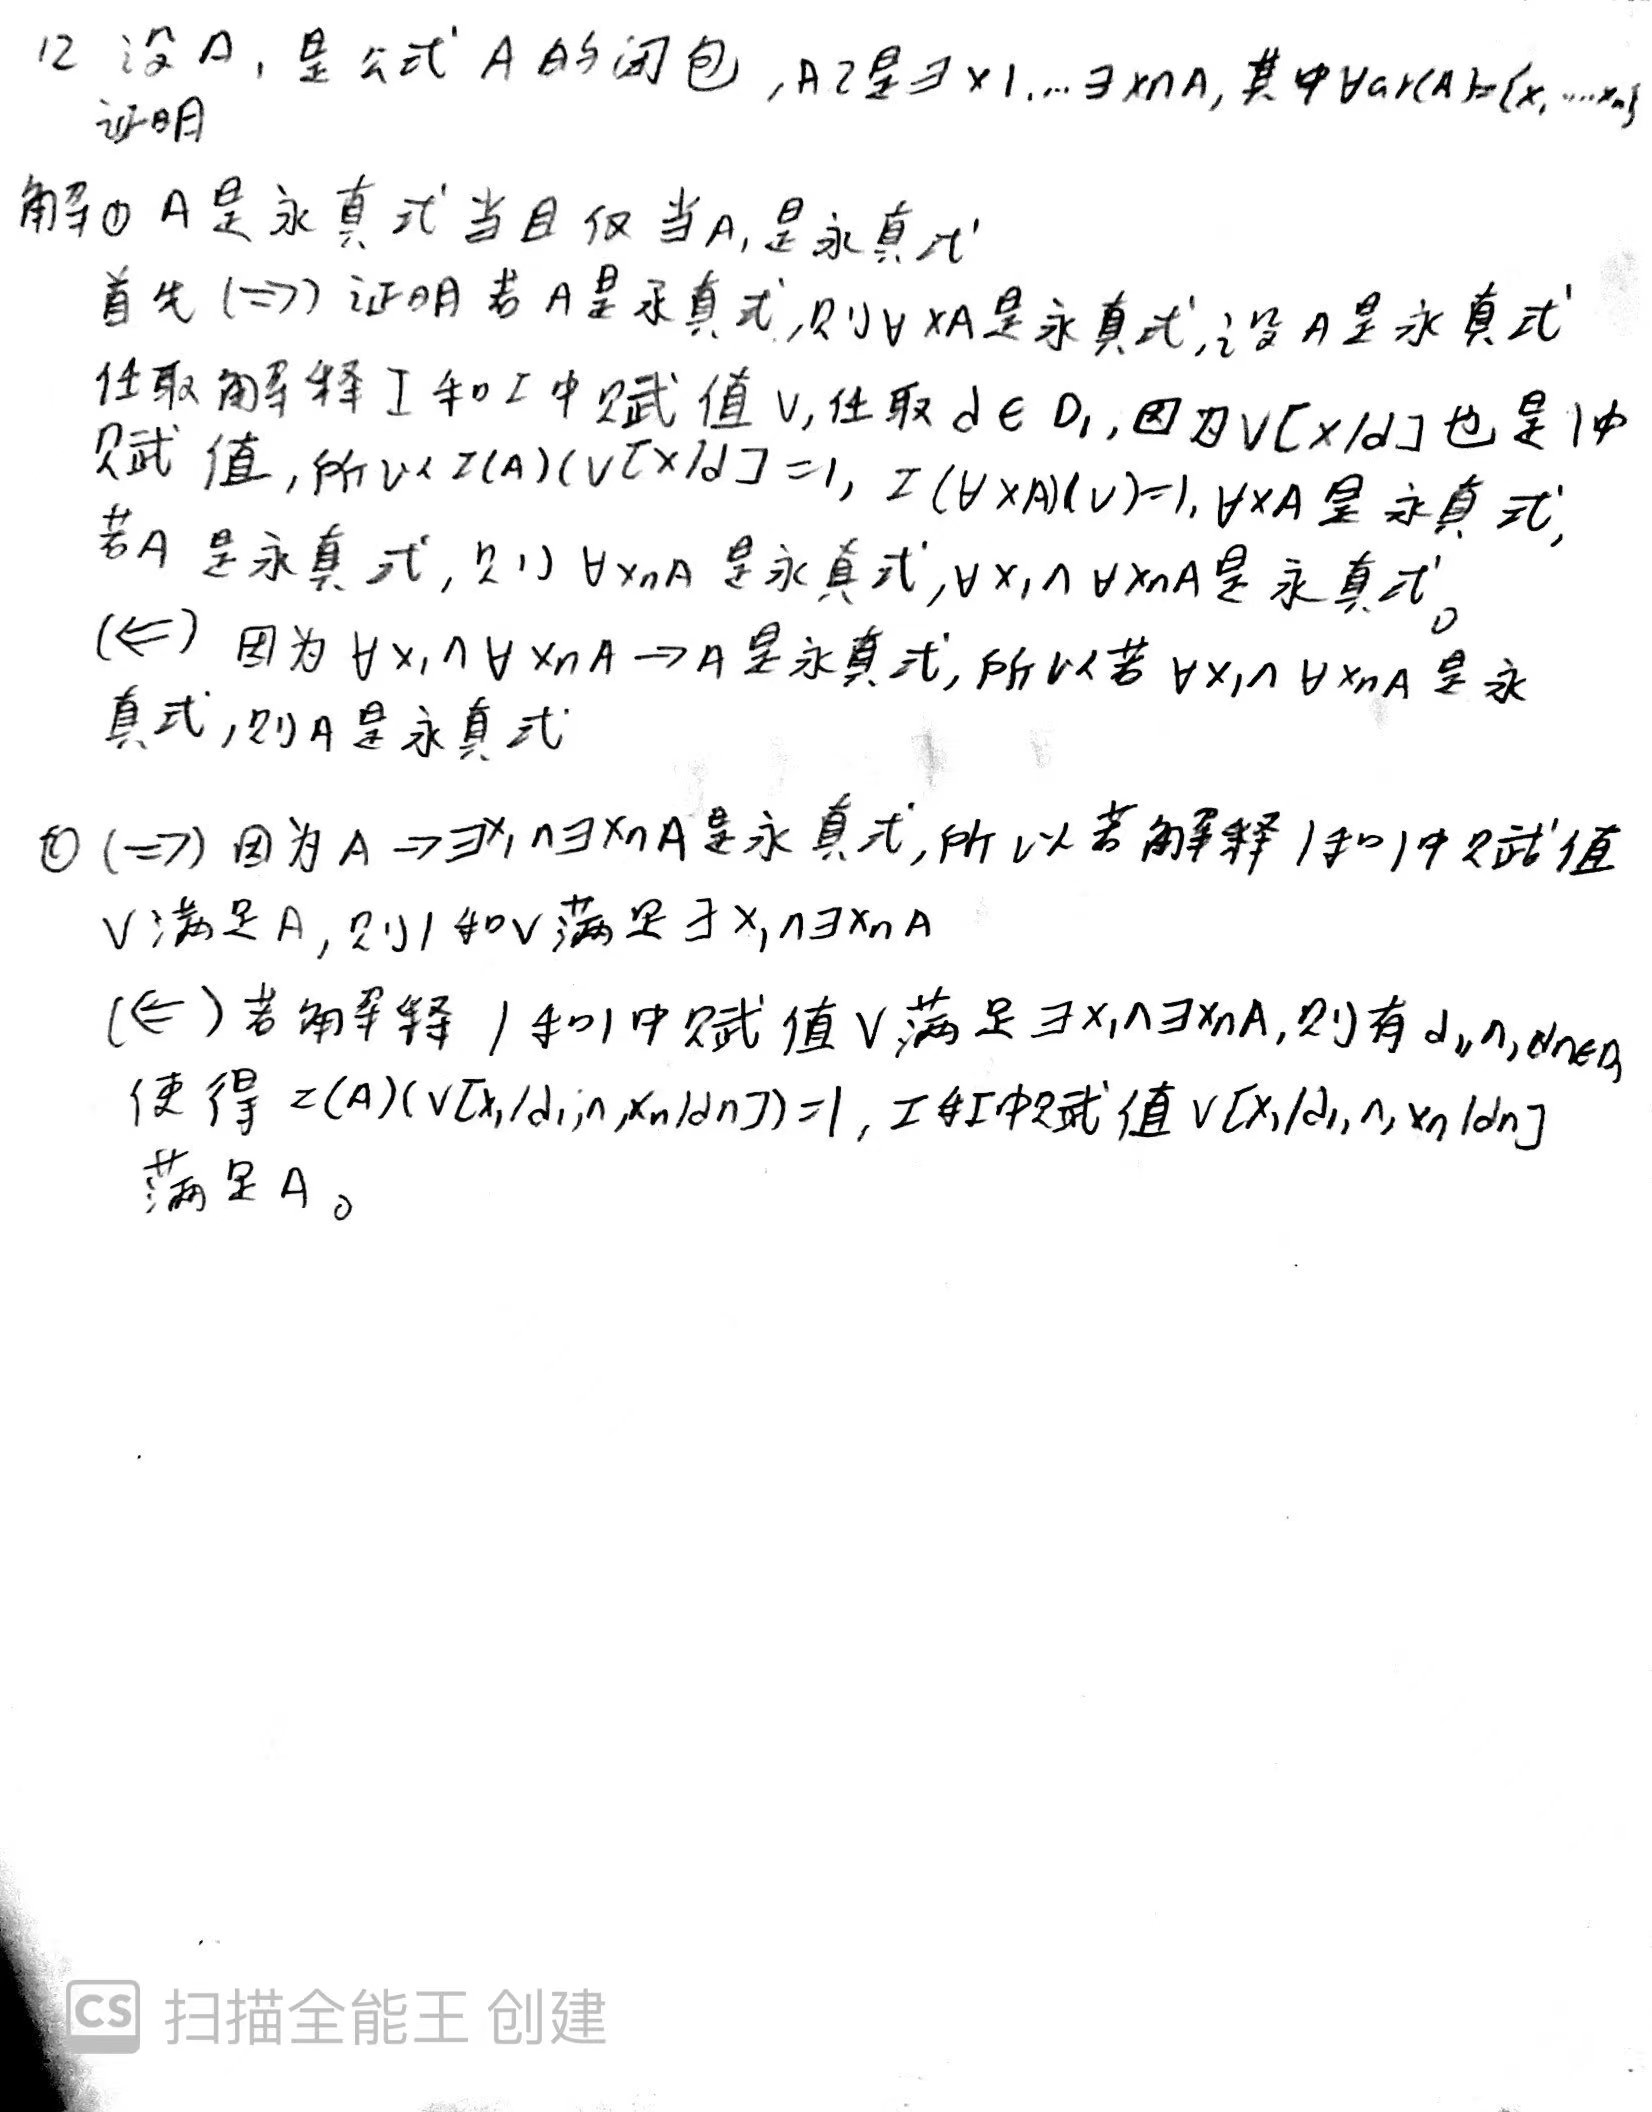 12 设A₁是公式A的闭包,A2是∃x1....∃xnA,其中Var(A)={x₁.....xₙ}
证明
解① A是永真式当且仅当A₁是永真式
首先(⇒)证明若A是永真式,则∀xA是永真式,设A是永真式
任取解释I和I中赋值v,任取d∈D₁,因为V[x/d]也是I中
赋值,所以I(A)(v[x/d]=1, I(∀xA)(v)=1,∀xA是永真式,
若A是永真式,则∀xₙA是永真式,∀x₁∩∀xₙA是永真式。
(⇐) 因为∀x₁∩∀xₙA→A是永真式,所以若∀x₁∩∀xₙA是永
真式,则A是永真式
② (⇒) 因为A→∃x₁∩∃xₙA是永真式,所以若解释I和I中赋值
V满足A,则I和V满足∃x₁∩∃xₙA
(⇐)若解释I和I中赋值V满足∃x₁∩∃xₙA,则有d₁,∩,dn∈D₁
使得I(A)(V[x₁/d₁,∩,xₙ/dn])=1,I和I中赋值V[x₁/d₁,∩,xₙ/dn]
满足A。
CS 扫描全能王 创建